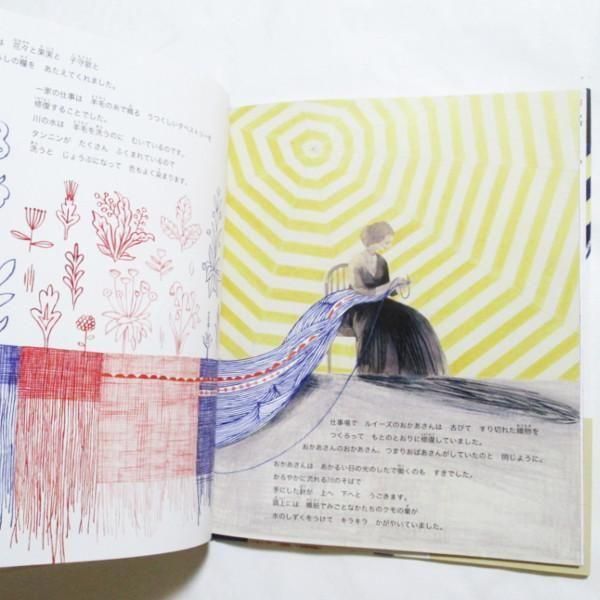 は 花々と果実と 子守歌と
らしの糧を あたえてくれました。
一家の仕事は 羊毛の糸で織る うつくしいタペストリーを
修復することでした。
川の水は 羊毛を洗うのに むいているのです。
タンニンが たくさん ふくまれているので
洗うと じょうぶになって 色もよく染まります。
仕事場で ルイーズのおかあさんは 古びて すり切れた織物を
つくろって もとのとおりに修復していました。
おかあさんのおかあさん、つまりおばあさんがしていたのと 同じように。
おかあさんは あかるい日の光のしたで働くのも すきでした。
かろやかに流れる川のそばで
手にした針が 上へ 下へと うごきます。
頭上には 繊細でみごとなかたちのクモの巣が
水のしずくをうけて キラキラ かがやいていました。